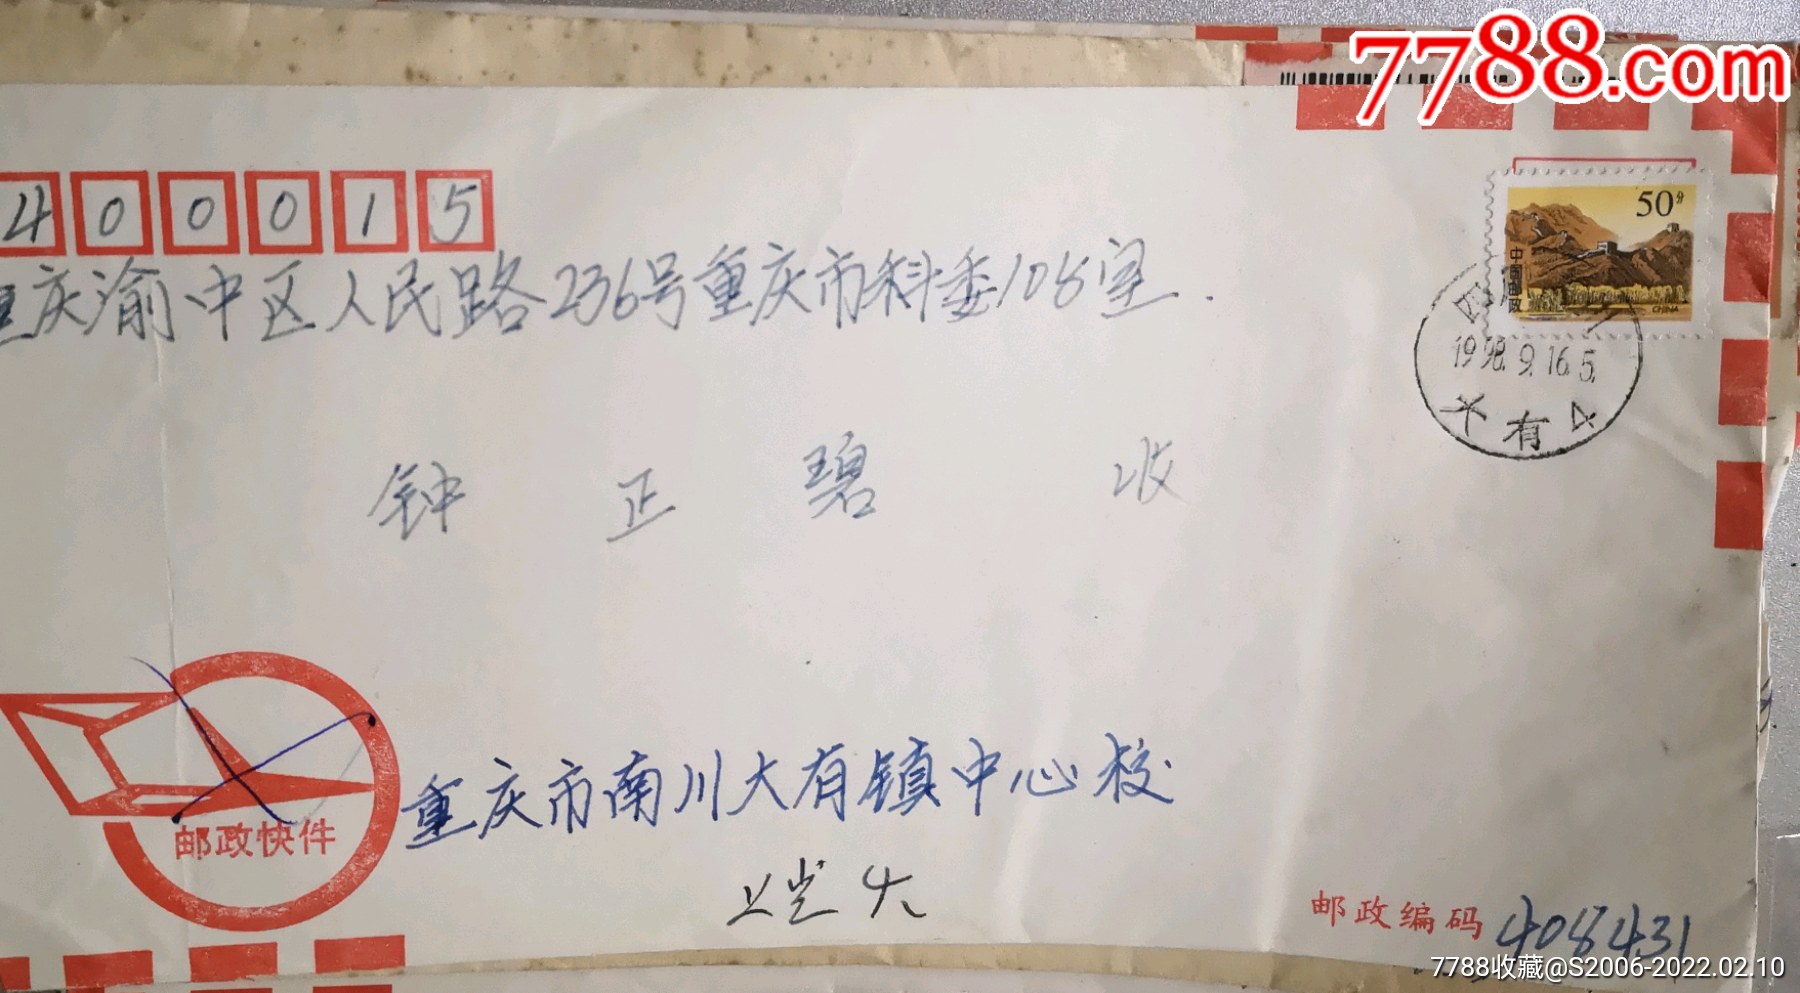 7788.com
400015
重庆渝中区人民路236号重庆市科委108室.
50分
中国邮政
CHINA
1998.9.16.5.
大有
钟正碧 收
邮政快件
重庆市南川大有镇中心校
邮政编码 408431
7788收藏@S2006-2022.02.10